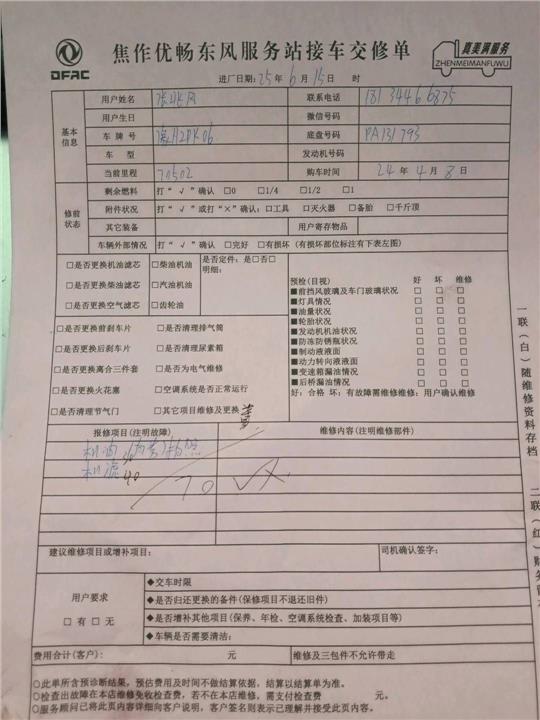 DFAC
焦作优畅东风服务站接车交修单
真美满服务
ZHENMEIMANFUWU
进厂日期:25年6月15日 时
基本信息
用户姓名 联系电话
用户生日 微信号码
车牌号 底盘号码 PA131793
车型 发动机号码
当前里程 70502 购车时间 24年4月8日
修前状态
剩余燃料 打“√”确认 □0 □1/4 □1/2 □1
附件状况 打“√”或打“×”确认:□工具 □灭火器 □备胎 □千斤顶
其它装备 用户寄存物品
车辆外部情况 打“√”确认 □完好 □有损坏(有损坏部位标注有下表左图)
□是否更换机油滤芯 □柴油机油 是否定件:是□否□
明细:
□是否更换柴油滤芯 □汽油机油
□是否更换空气滤芯 □齿轮油
□是否更换前刹车片 □是否清理排气筒
□是否更换后刹车片 □是否清理尿素箱
□是否更换离合三件套 □是否为电气维修
□是否更换火花塞 □空调系统是否正常运行
□是否清理节气门 □其它项目维修及更换
预检(目视) 好 坏 维修
■前挡风玻璃及车门玻璃状况 □ □ □
■灯具情况 □ □ □
■油量状况 □ □ □
■轮胎状况 □ □ □
■发动机机油状况 □ □ □
■防冻防锈瓶状况 □ □ □
■制动液液面 □ □ □
■动力转向液液面 □ □ □
■变速箱漏油情况 □ □ □
■后桥漏油情况 □ □ □
好:合格 坏:有故障需维修维修:用户确认维修
报修项目(注明故障) 维修内容(注明维修部件)
机油
机滤 40
70
建议维修项目或增补项目: 司机确认签字:
用户要求
□有□无
◆交车时限
◆是否归还更换的备件(保修项目不退还旧件)
◆是否增补其他项目(保养、年检、空调系统检查、加装项目等)
◆车辆是否需要清洁:
费用合计(客户): 元 维修及三包件不允许带走
○此单所含预诊断结果,预估费用及时间不做结算依据,结算以结算单为准。
○检查出故障在本店维修免收检查费,若不在本店维修,需支付检查费 元。
○服务顾问已将此页内容详细向客户说明,客户签名则表示已理解并接受此页内容。
一联(白)随维修资料存档
二联(红)